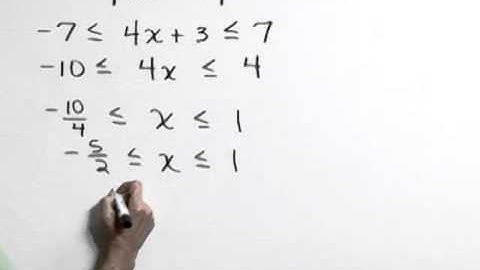 -7 ≤ 4x + 3 ≤ 7
-10 ≤ 4x ≤ 4
-10/4 ≤ x ≤ 1
-5/2 ≤ x ≤ 1